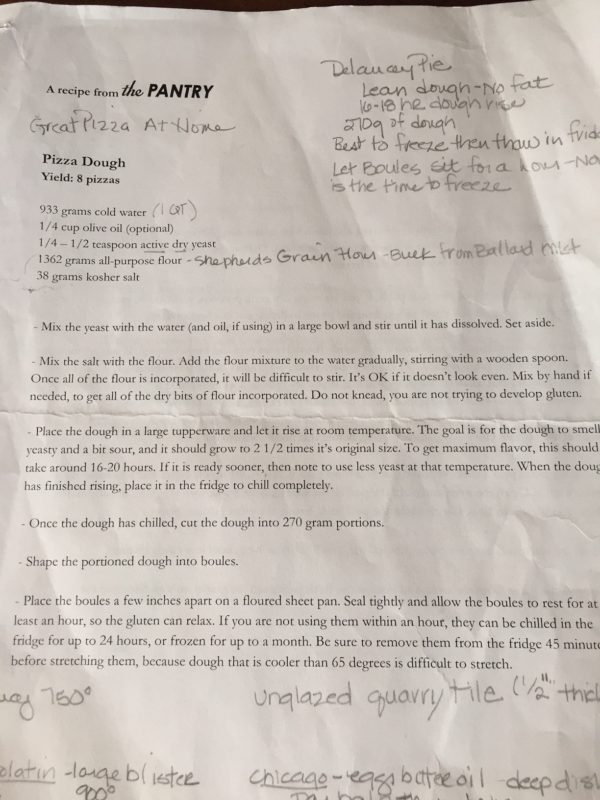 A recipe from the PANTRY
Great Pizza At Home
Delancey Pie
Lean dough - No fat
16-18 hr dough rise
270g of dough
Best to freeze then thaw in frid
Let Boules sit for a hour - No
is the time to freeze
Pizza Dough
Yield: 8 pizzas
933 grams cold water (1 QT)
1/4 cup olive oil (optional)
1/4 – 1/2 teaspoon active dry yeast
1362 grams all-purpose flour - Shepherds Grain Flour - Buck from Ballard Mkt
38 grams kosher salt
- Mix the yeast with the water (and oil, if using) in a large bowl and stir until it has dissolved. Set aside.
- Mix the salt with the flour. Add the flour mixture to the water gradually, stirring with a wooden spoon.
Once all of the flour is incorporated, it will be difficult to stir. It's OK if it doesn't look even. Mix by hand if
needed, to get all of the dry bits of flour incorporated. Do not knead, you are not trying to develop gluten.
- Place the dough in a large tupperware and let it rise at room temperature. The goal is for the dough to smell
yeasty and a bit sour, and it should grow to 2 1/2 times it's original size. To get maximum flavor, this should
take around 16-20 hours. If it is ready sooner, then note to use less yeast at that temperature. When the doug
has finished rising, place it in the fridge to chill completely.
- Once the dough has chilled, cut the dough into 270 gram portions.
- Shape the portioned dough into boules.
- Place the boules a few inches apart on a floured sheet pan. Seal tightly and allow the boules to rest for at
least an hour, so the gluten can relax. If you are not using them within an hour, they can be chilled in the
fridge for up to 24 hours, or frozen for up to a month. Be sure to remove them from the fridge 45 minute
before stretching them, because dough that is cooler than 65 degrees is difficult to stretch.
750° unglazed quarry tile (1/2" thick
olatin - large blister chicago - eggs butter oil - deep dis
900°